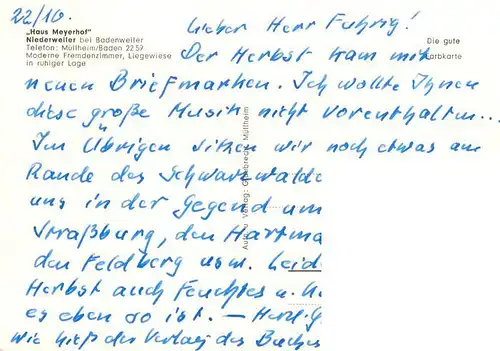 22/10.
Lieber Herr Fuhrig!
„Haus Meyerhof"
Niederweiler bei Badenweiler
Telefon: Müllheim/Baden 22 59
Moderne Fremdenzimmer, Liegewiese
in ruhiger Lage
Die gute
Farbkarte
Der Herbst kam mit
neuen Briefmarken. Ich wollte Ihnen
diese große Musik nicht vorenthalten...
Im Übrigen sitzen wir noch etwas am
Rande des Schwarzwalde
uns in der Gegend um
Straßburg, den Hartma
den Feldberg usw. Leid
Herbst auch Feuchtes u.
es eben so ist. – Herzl. G
Wie hieß der Verlag des Buches
Aufn. u. Verlag: Müllheim